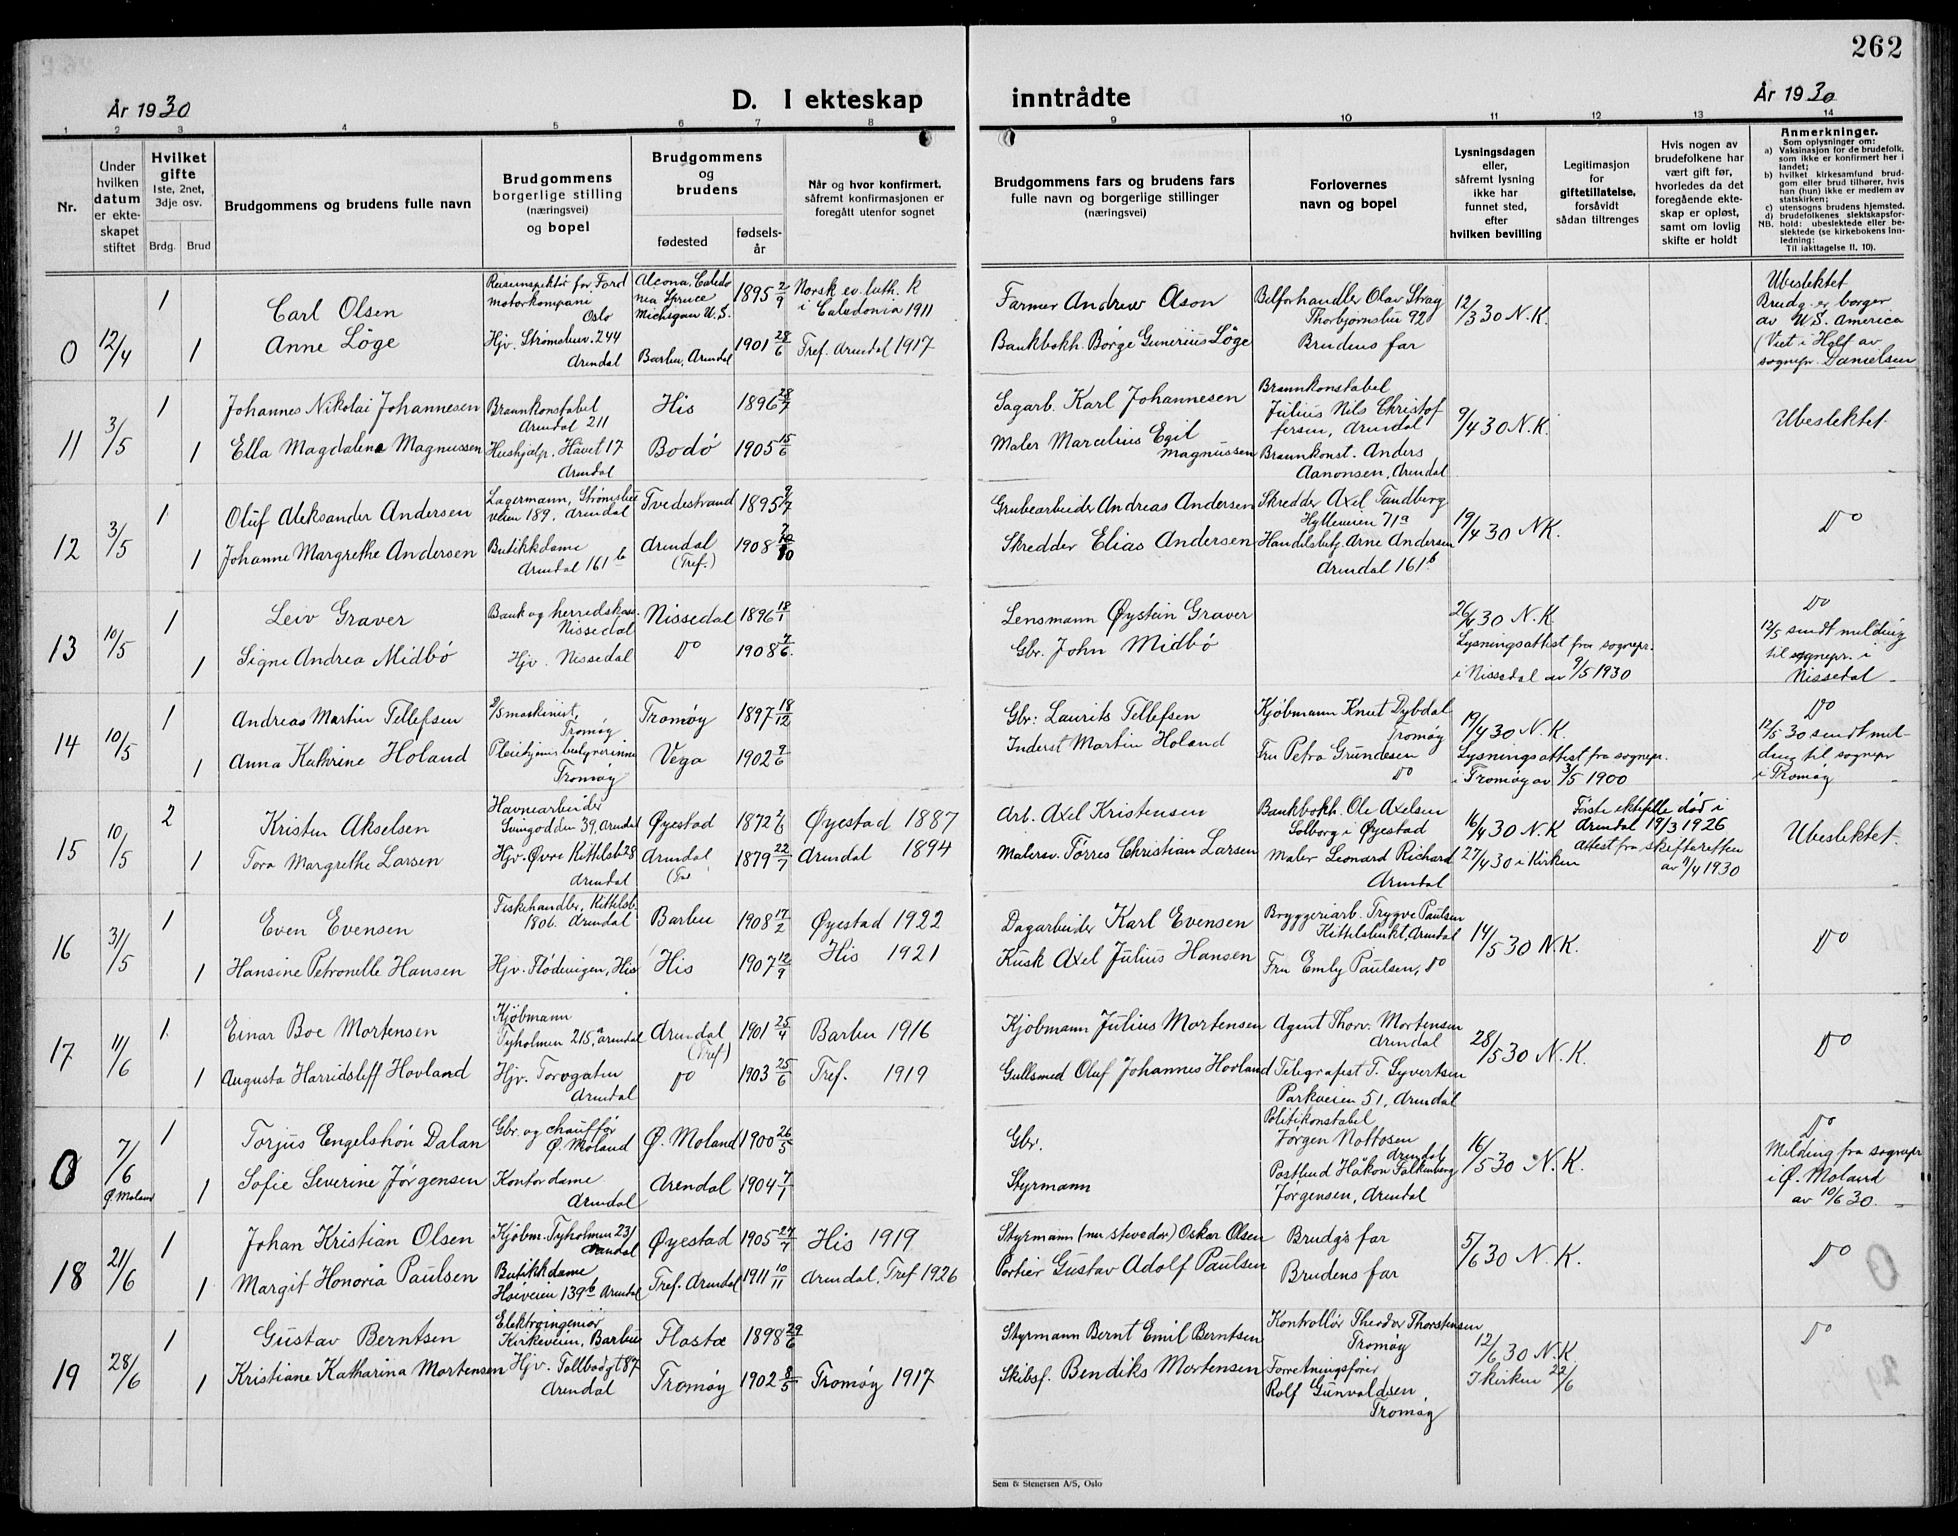 262
År 1930
D. I ekteskap
inntrådte
År 1930
1 2 3 4 5 6 7 8
9 10 11 12 13 14
Nr.
Under hvilken datum er ekteskapet stiftet
Hvilket gifte
1ste, 2net, 3dje osv.
Brdg. Brud
Brudgommens og brudens fulle navn
Brudgommens borgerlige stilling (næringsvei) og bopel
Brudgommens og brudens
fødested
fødselsår
Når og hvor konfirmert, såfremt konfirmasjonen er foregått utenfor sognet
Brudgommens fars og brudens fars fulle navn og borgerlige stillinger (næringsvei)
Forlovernes navn og bopel
Lysningsdagen eller, såfremt lysning ikke har funnet sted, efter hvilken bevilling
Legitimasjon for giftetillatelse, forsåvidt sådan tiltrenges
Hvis nogen av brudefolkene har vært gift før, hvorledes da det foregående ekteskap er opløst, samt om lovlig skifte er holdt
Anmerkninger.
Som oplysninger om:
a) Vaksinasjon for de brudefolk, som ikke er konfirmert her i landet;
b) hvilket kirkesamfund brudgom eller brud tilhører, hvis han (hun) ikke er medlem av statskirken;
c) utensogns brudens hjemsted.
d) brudefolkenes slektskapsforhold: ubeslektede eller beslektede (se kirkebokens Innledning:
NB. Til iakttagelse II, 10).
0 12/4 1 Carl Olsen Reiseinspektör for Ford motorkompani Oslo Alcona, Caledonia Spruce Michigan U.S. 1895 2/9 Norsk ev. luth. k i Caledonia 1911
1 Anne Löge Hjv. Strömsbuv. 244 Arendal Barbu, Arendal 1901 28/6 Tref. Arendal 1917
Farmer Andrew Olson Bilforhandler Olav Stray Thorbjørnsbu 92 12/3 30 N.K.
Bankbokh. Börge Gunerius Löge Brudens far
Ubeslektet
Brudg. er borger
av U.S. America
(Viet i Holt av
sognepr. Danielsen
11 3/5 1 Johannes Nikolai Johannesen Brannkonstabel Arendal 211 His 1896 28/7
1 Ella Magdalene Magnussen Hushjelp. Håvet 17 Arendal Bodö 1905 15/6
Sagarb. Karl Johannesen Brannkonstabel Julius Nils Christoffersen, Arendal 9/4 30 N.K. Ubeslektet.
Maler Marcelius Egil Magnussen Brannkonst. Anders Aanonsen, Arendal
12 3/5 1 Oluf Aleksander Andersen Lagermann, Strömsbuveien 189, Arendal Tvedestrand 1895 9/7
1 Johanne Margrethe Andersen Butikkdame Arendal 161 b Arendal (Tref.) 1908
Grubearbeider Andreas Andersen Skredder Axel Tandberg Hylleveien 71 a 19/4 30 N.K. Do
Skredder Elias Andersen Handelsbetj. Arne Andersen Arendal 161 b
13 10/5 1 Leiv Graver Bank og herredskass. Nissedal Nissedal 1896 18/1
1 Signe Andrea Midbö Hjv. Nissedal Do 1908 7/6.
Lensmann Øystein Graver 26/4 30 N.K.
Gbr. John Midbö Lysningsattest fra sognepr. i Nissedal av 9/5 1930
Do
12/5 sendt melding
til sognepr. i
Nissedal
14 10/5 1 Andreas Martin Tellefsen D/S maskinist, Tromøy Tromøy 1897 18/12
1 Anna Kathrine Holand Pleiehjemsbestyrerinne Tromøy Vega 1902
Gbr: Laurits Tellefsen Kjöbmann Knut Dybdal Tromøy 19/4 30 N.K.
Inderst Martin Holand Fru Petra Grundesen Do Lysningsattest fra sognepr. i Tromøy av 3/5 1900
Do
12/5 30 sendt melding til sognepr
i Tromøy
15 10/5 2 Kristen Akselsen Havnearbeider Gungodden 39, Arendal Øyestad 1872 Øyestad 1887
1 Tora Margrethe Larsen Hjv. Øvre Kittelsb 28 Arendal Arendal 1879 22/7 Arendal 1894
Arb. Axel Kristensen Bankbokh. Ole Axelsen Solborg i Øyestad 16/4 30 N.K
Malersv. Törres Christian Larsen Maler Leonard Richard Arendal 27/4 30 i Kirken
Første ektefelle död i
Arendal 19/3 1926
Attest fra skifteretten
av 9/4 1930
Ubeslektet.
16 31/5 1 Even Evensen Fiskehandler, Kittelsb. 1806. Arendal Barbu 1908 17/2 Øyestad 1922
1 Hansine Petronelle Hansen Hjv. Flødevigen, His His 1907 12/9 His 1921
Dagarbeider Karl Evensen Bryggeriarb. Trygve Paulsen Kittelsbukt, Arendal 14/5 30 N.K. Do
Kusk Axel Julius Hansen Fru Emly Paulsen, Do
17 11/6 1 Einar Boe Mortensen Kjöbmann Tyholmen 215, a Arendal Arendal (Tref) 1901 25/4 Barbu 1916
1 Augusta Harridsleff Hovland Hjv. Torvgaten Arendal Do 1903 25/6 Tref. 1919
Kjöbmann Julius Mortensen Agent Thorv. Mortensen Arendal 28/5 30 N.K. Do
Gullsmed Oluf Johannes Hovland Telegrafist T. Syvertsen Parkveien 51, Arendal
0 7/6 Ø. Moland 1 Torjus Engelshön Dalan Gbr. og chaufför Ø. Moland Ø. Moland 1900 26/5
1 Sofie Severine Jörgensen Kontordame Arendal Arendal 1904 7/1
Gbr. Politikonstabel Jørgen Nottosen Arendal 16/5 30 N.K.
Styrmann Postbud Håkon Falkenberg Jörgensen, Arendal
Do
Melding fra sognepr
i Ø. Moland
av 10/6 30.
18 21/6 1 Johan Kristian Olsen Kjöbm. Tyholmen 231 Arendal Øyestad 1905 27/7 His 1919
1 Margit Honoria Paulsen Butikkdame Høiveien 139 b Arendal Tref. Arendal 1911 10/11 Arendal, Tref 1926
Styrmann (nu stevedor) Oskar Olsen Brudg's far 5/6 30 N.K. Do
Portier Gustav Adolf Paulsen Brudens far
19 28/6 1 Gustav Berntsen Elektroingeniør Kirkeveien, Barbu Flosta 1898 29/6
1 Kristiane Katharina Mortensen Hjv. Tollbodgt 87 Arendal Tromøy 1902 8/5 Tromøy 1917
Styrmann Bernt Emil Berntsen Kontrollør Theodor Thorstensen Tromøy 12/6 30 N.K Do
Skibsf. Bendiks Mortensen Forretningsfører Rolf Gunvaldsen, Tromøy I kirken 22/6
Sem & Stenersen A/S, Oslo